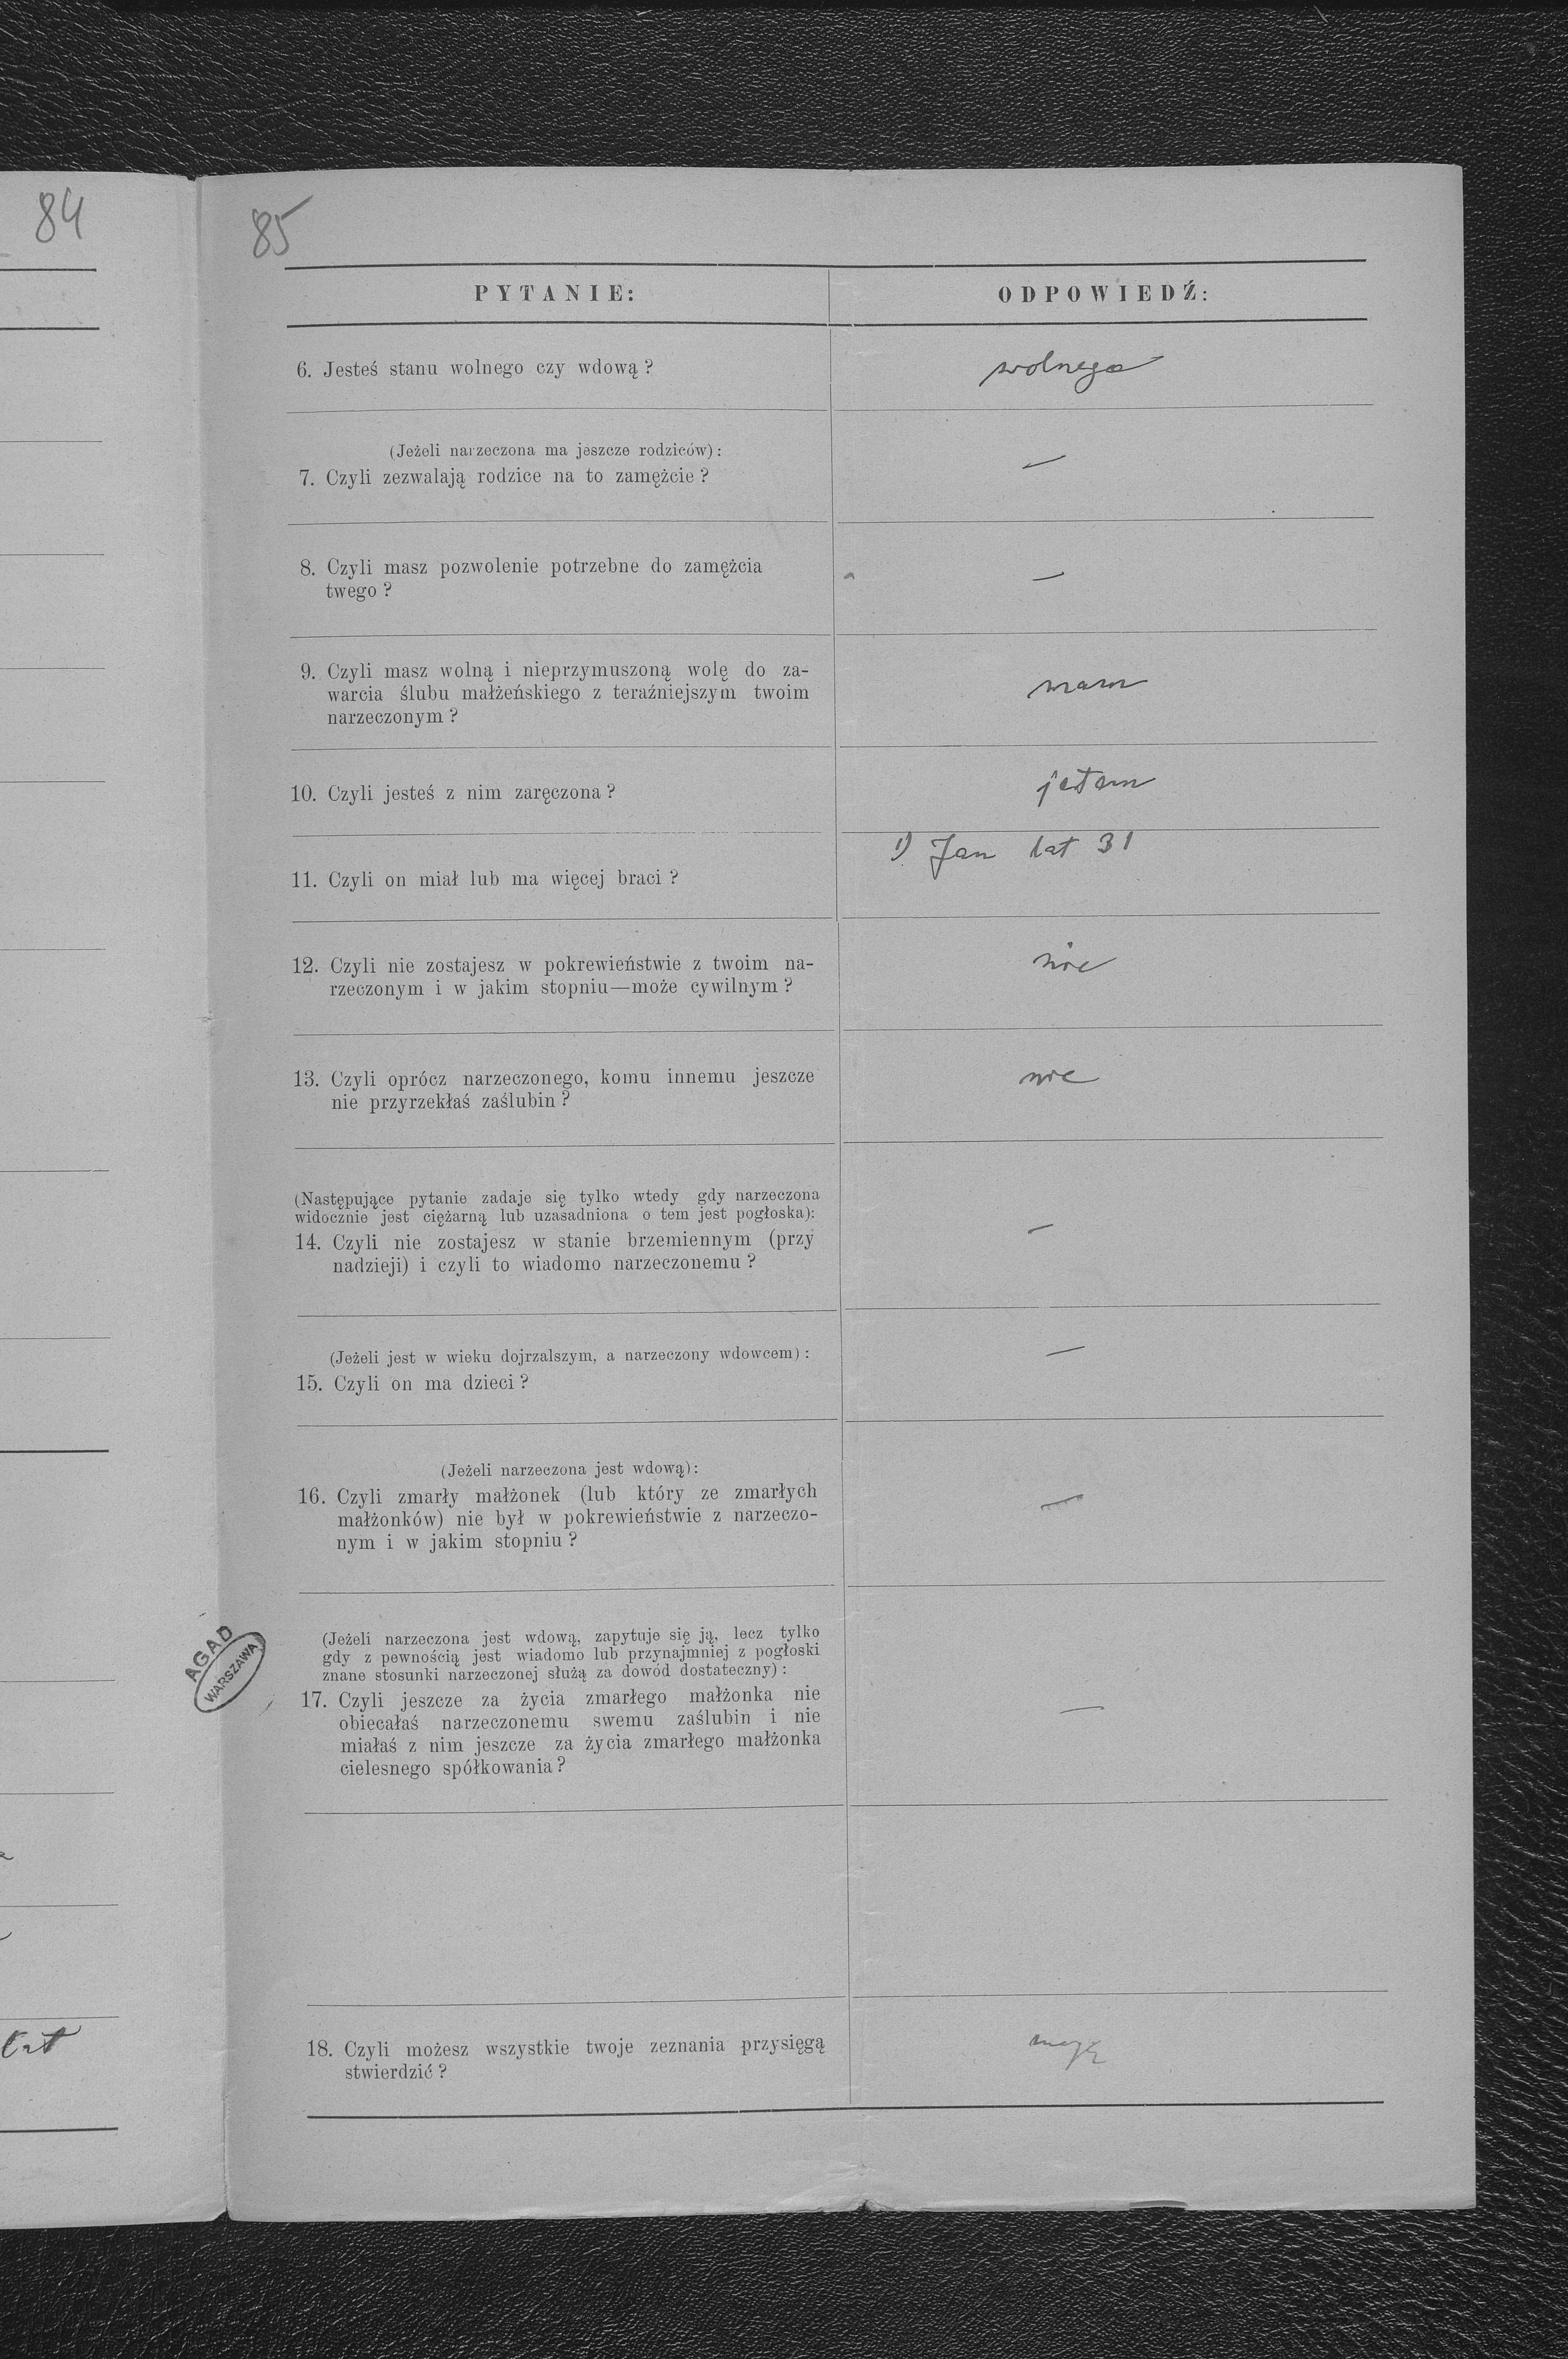 84
lat
85
PYTANIE:
ODPOWIEDŹ:
6. Jesteś stanu wolnego czy wdową?
wolnego
(Jeżeli narzeczona ma jeszcze rodziców):
7. Czyli zezwalają rodzice na to zamężcie?
—
8. Czyli masz pozwolenie potrzebne do zamężcia
twego?
—
9. Czyli masz wolną i nieprzymuszoną wolę do za-
warcia ślubu małżeńskiego z teraźniejszym twoim
narzeczonym?
mam
10. Czyli jesteś z nim zaręczona?
jestem
11. Czyli on miał lub ma więcej braci?
1) Jan lat 31
12. Czyli nie zostajesz w pokrewieństwie z twoim na-
rzeczonym i w jakim stopniu—może cywilnym?
nie
13. Czyli oprócz narzeczonego, komu innemu jeszcze
nie przyrzekłaś zaślubin?
nie
(Następujące pytanie zadaje się tylko wtedy gdy narzeczona
widocznie jest ciężarną lub uzasadniona o tem jest pogłoska):
14. Czyli nie zostajesz w stanie brzemiennym (przy
nadzieji) i czyli to wiadomo narzeczonemu?
—
(Jeżeli jest w wieku dojrzalszym, a narzeczony wdowcem):
15. Czyli on ma dzieci?
—
(Jeżeli narzeczona jest wdową):
16. Czyli zmarły małżonek (lub który ze zmarłych
małżonków) nie był w pokrewieństwie z narzeczo-
nym i w jakim stopniu?
—
(Jeżeli narzeczona jest wdową, zapytuje się ją, lecz tylko
gdy z pewnością jest wiadomo lub przynajmniej z pogłoski
znane stosunki narzeczonej służą za dowód dostateczny):
17. Czyli jeszcze za życia zmarłego małżonka nie
obiecałaś narzeczonemu swemu zaślubin i nie
miałaś z nim jeszcze za życia zmarłego małżonka
cielesnego spółkowania?
—
AGAD
WARSZAWA
18. Czyli możesz wszystkie twoje zeznania przysięgą
stwierdzić?
mogę